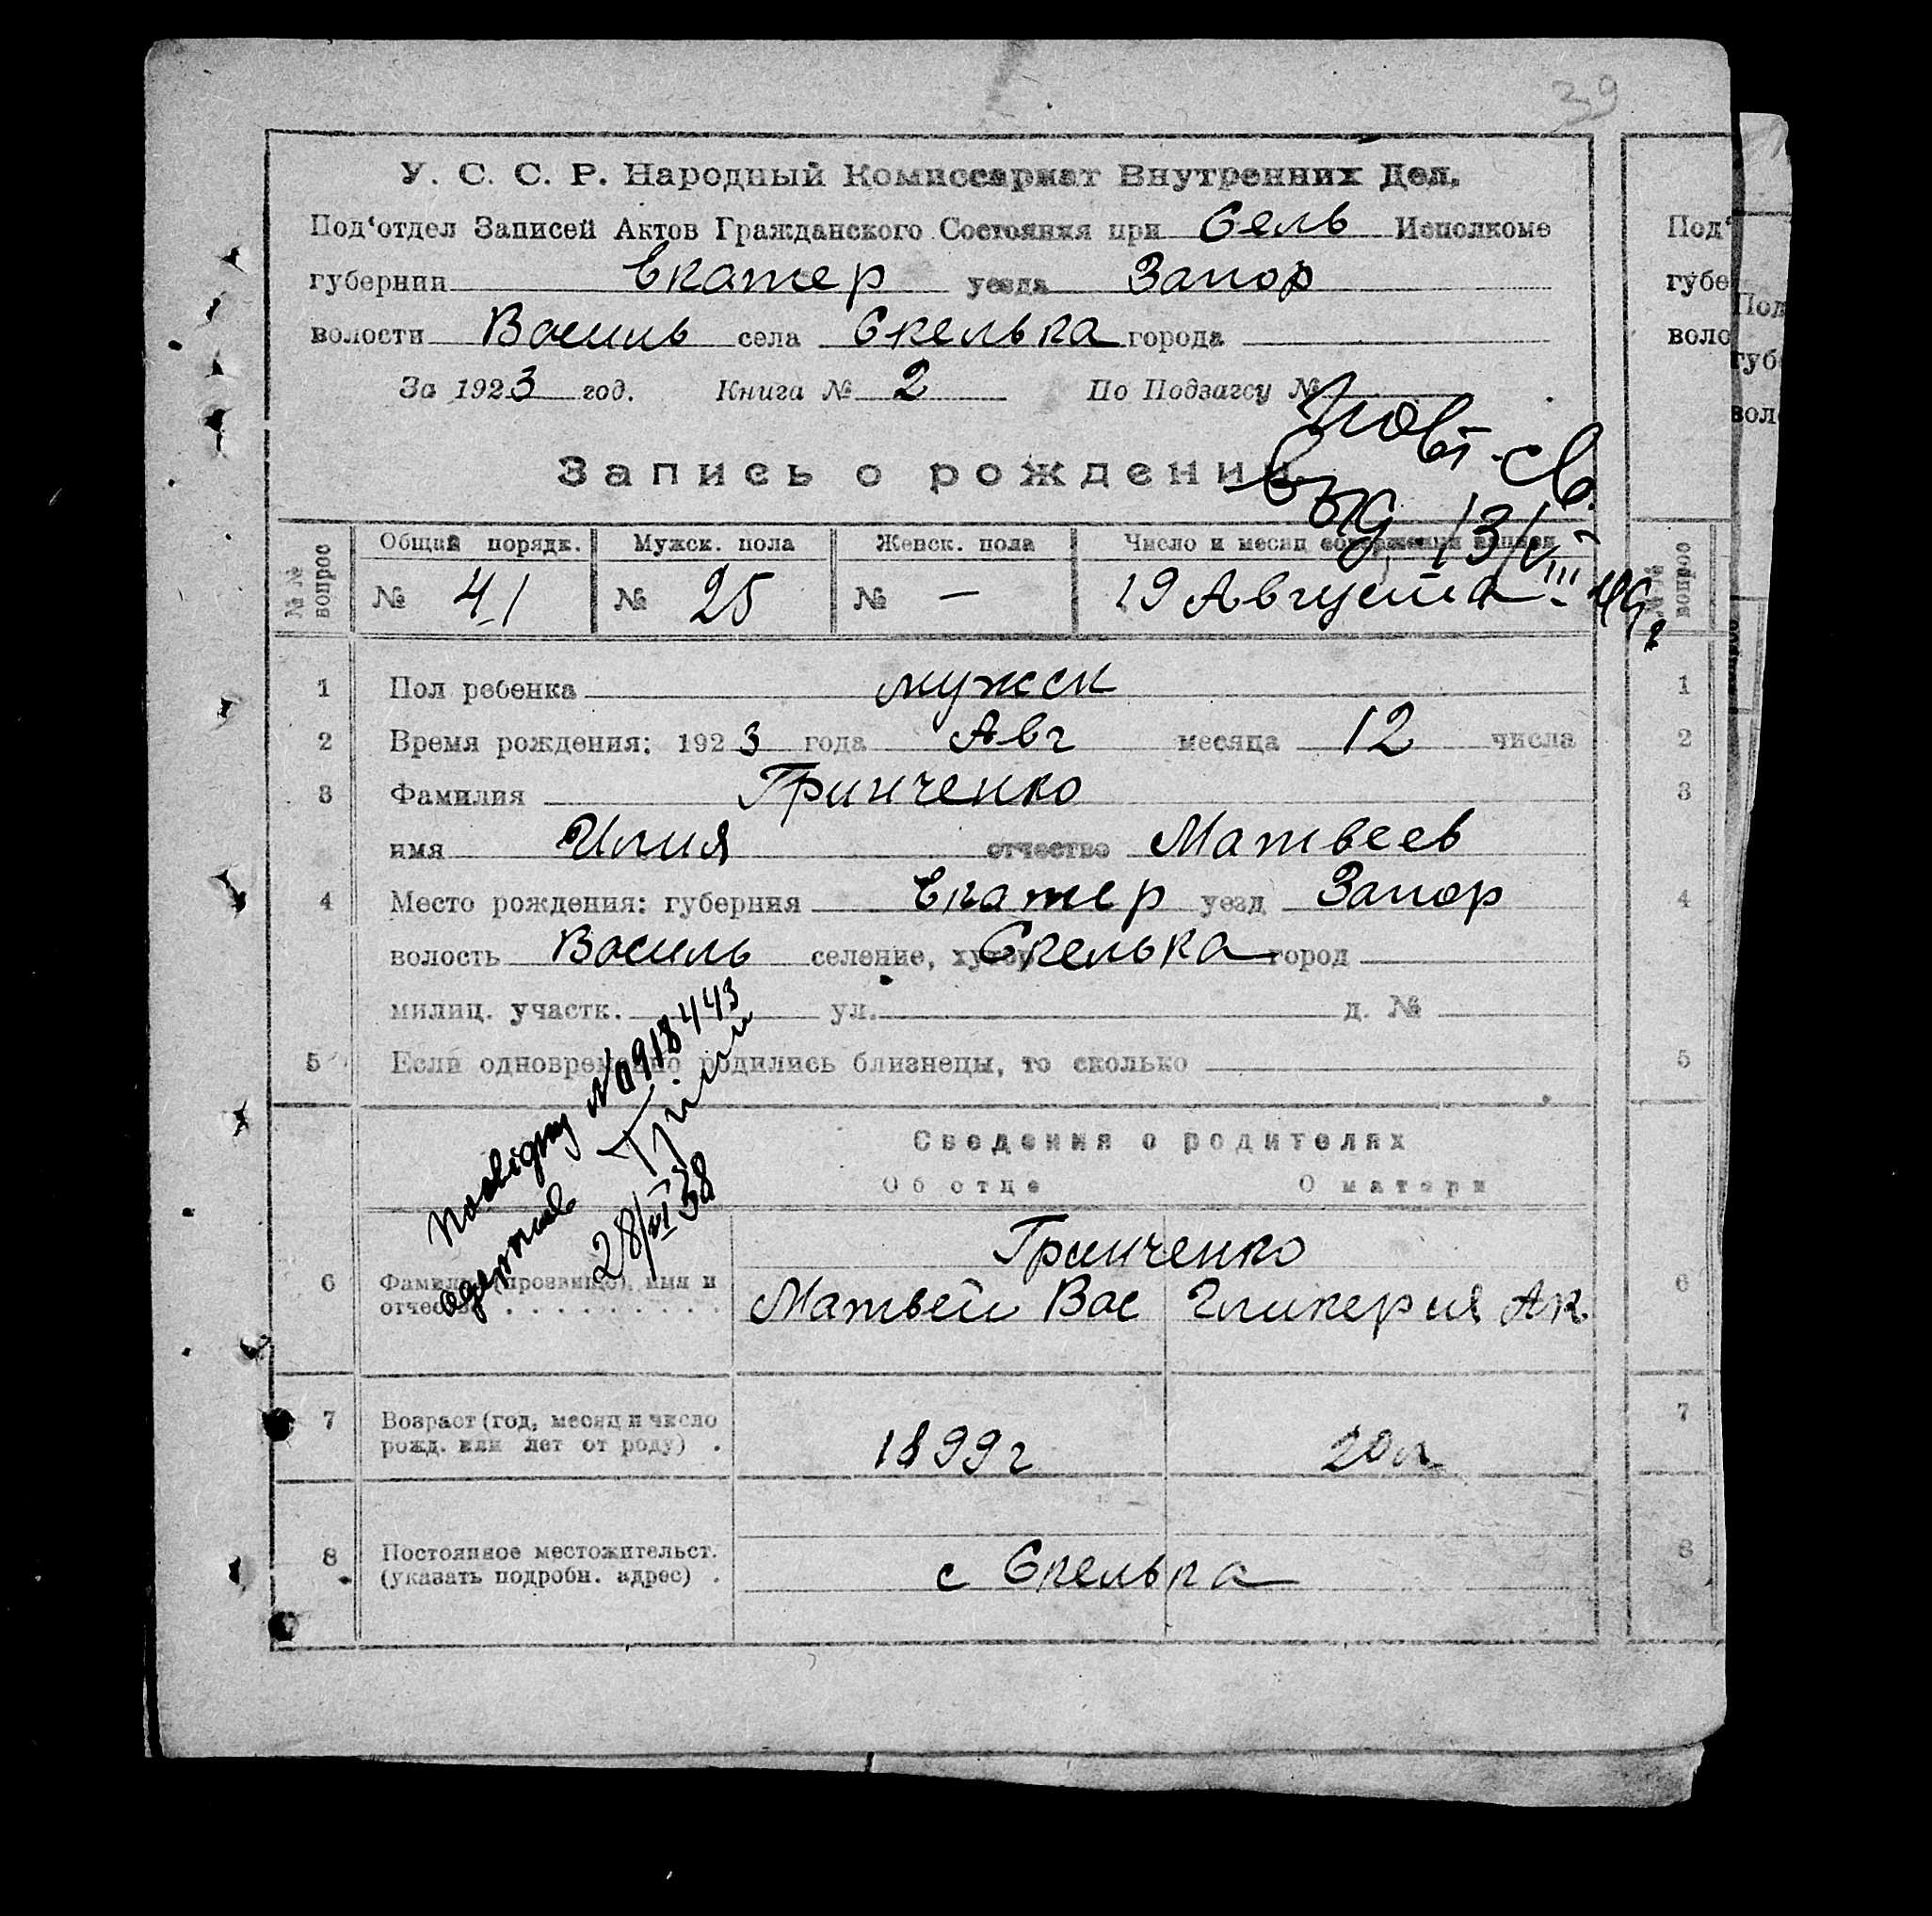 39
У. С. С. Р. Народный Комиссариат Внутренних Дел.
Под‘отдел Записей Актов Гражданского Состояния при Сель Исполкоме
губернии Екатер уезда Запор
волости Василь села Скелька города
За 1923 год. Книга № 2 По Подзагсу №
Повт. св.
Запись о рождении
выд 13/VIII-49г
№№ вопрос
Общий порядк. Мужск. пола Женск. пола Число и месяц совершения записи
№ 41 № 25 № — 19 Августа
1 Пол ребенка мужск
2 Время рождения: 1923 года Авг месяца 12 числа
3 Фамилия Гринченко
имя Илия отчество Матвеев
4 Место рождения: губерния Екатер уезд Запор
волость Василь селение, хутор Скелька город
милиц. участк. ул. д. №
5 Если одновременно родились близнецы, то сколько
Посвідку №0918443
одержав Грінч
28/VI 38
Сведения о родителях
Об отце О матери
Гринченко
6 Фамилия (прозвище), имя и
отчество Матвей Вас Гликерия Ак.
7 Возраст (год, месяц и число
рожд. или лет от роду) 1899г 20л
8 Постоянное местожительст.
(указать подробн. адрес) с Скелька
Под‘
губе
воло
вопрос
1
2
3
4
5
6
7
8
Под
губ
вол